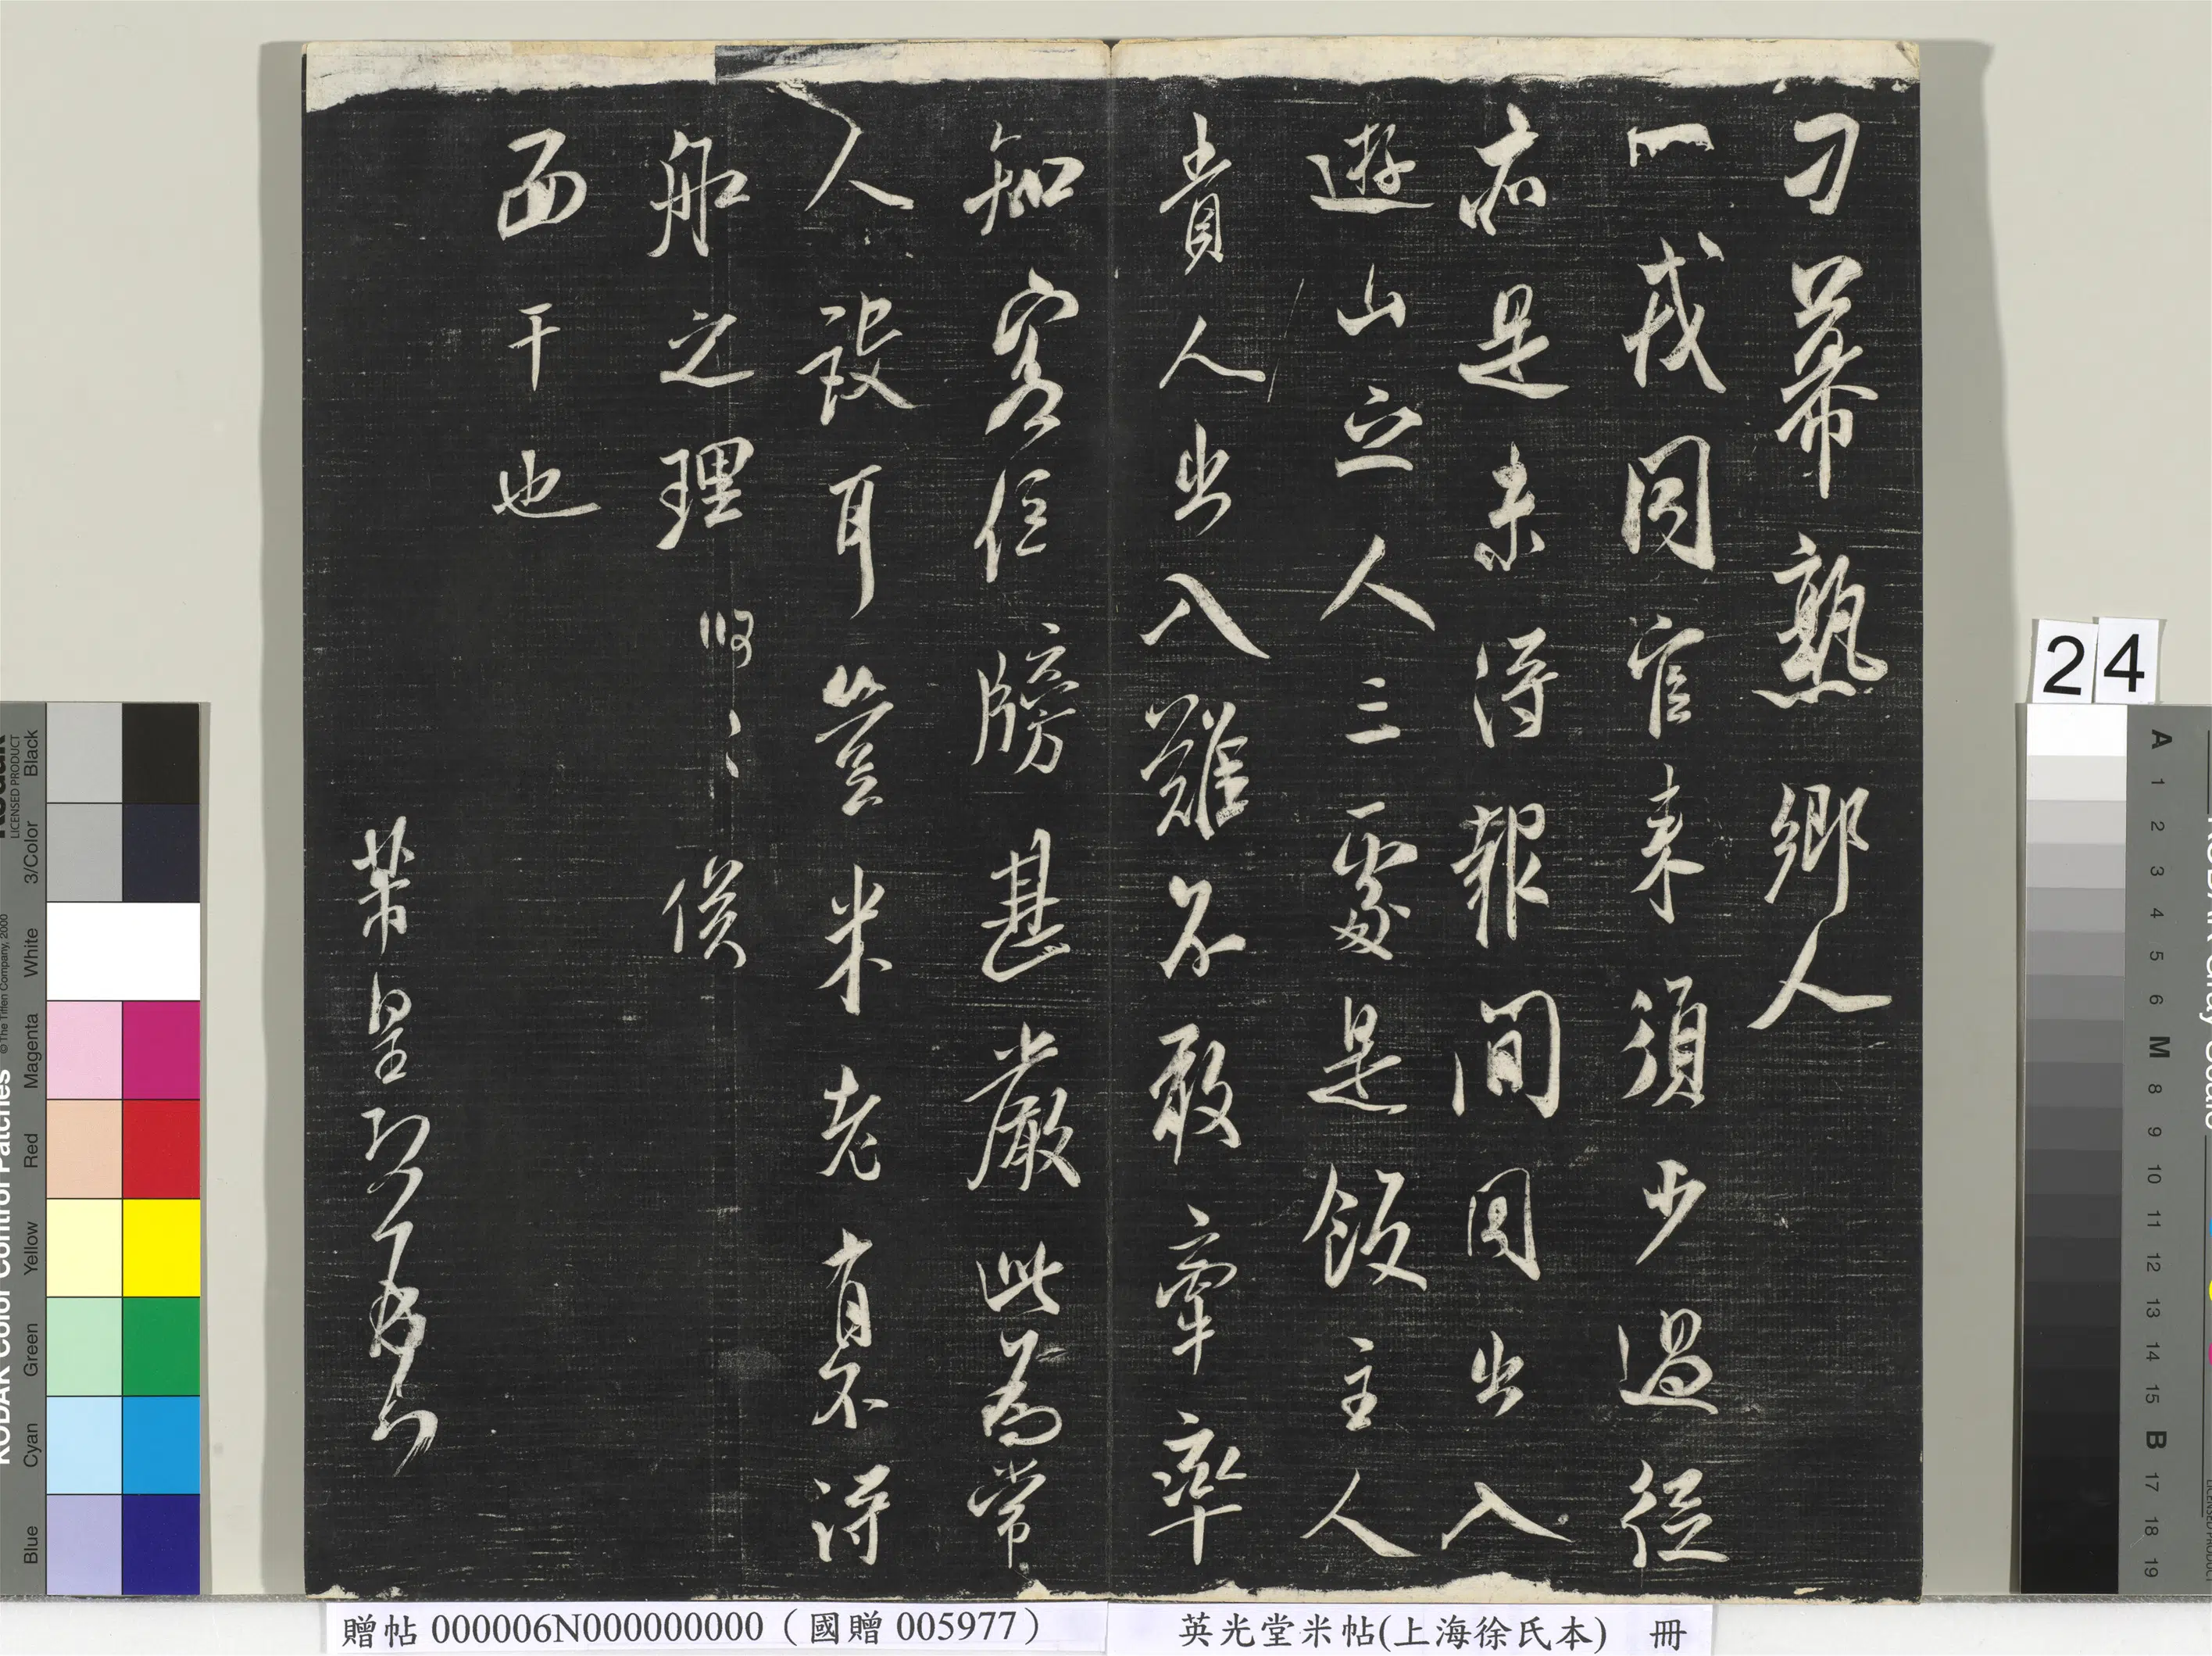 刁幕熟鄉人
一戎同官来須少過從
亦是未得報間因出入
遊山之人三二處是飯主人
貴人出入難不敢牽率
知客位牓甚嚴此為常
人設耳豈米老有不得
船之理呵〻俟
面干也
芾皇恐
贈帖 000006N000000000（國贈 005977）
英光堂米帖(上海徐氏本) 冊
24
KODAK Color Control Patches
LICENSED PRODUCT
© The Tiffen Company, 2000
Blue Cyan Green Yellow Red Magenta White 3/Color Black
A 1 2 3 4 5 6 M 8 9 10 11 12 13 14 15 B 17 18 19